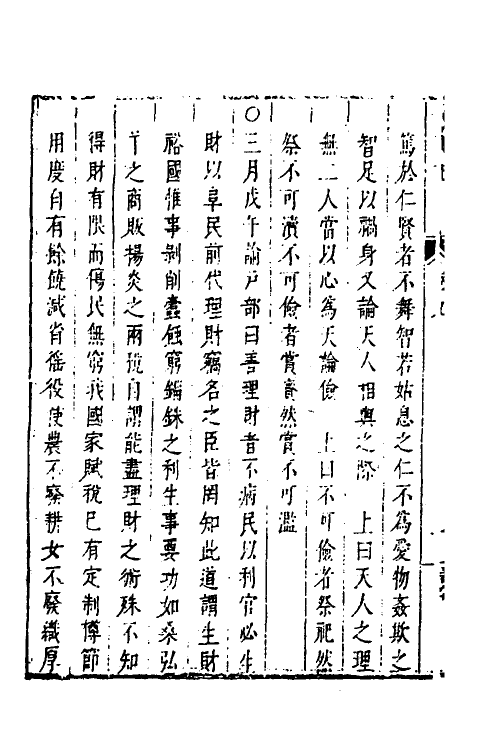 篤於仁賢者不舞智若姑息之仁不為愛物姦欺之
智足以禍身又論天人相與之際　上曰天人之理
無二人當以心為天論儉　上曰不可儉者祭祀然
祭不可瀆不可儉者賞賚然賞不可濫
○三月戊午諭戶部曰善理財者不病民以利官必生
財以阜民前代理財竊名之臣皆罔知此道謂生財
裕國惟事剝削蠹蝕窮錙銖之利生事要功如桑弘
羊之商販楊炎之兩稅自謂能盡理財之術殊不知
得財有限而傷民無窮我國家賦稅已有定制撙節
用度自有餘饒減省徭役使農不廢耕女不廢織厚